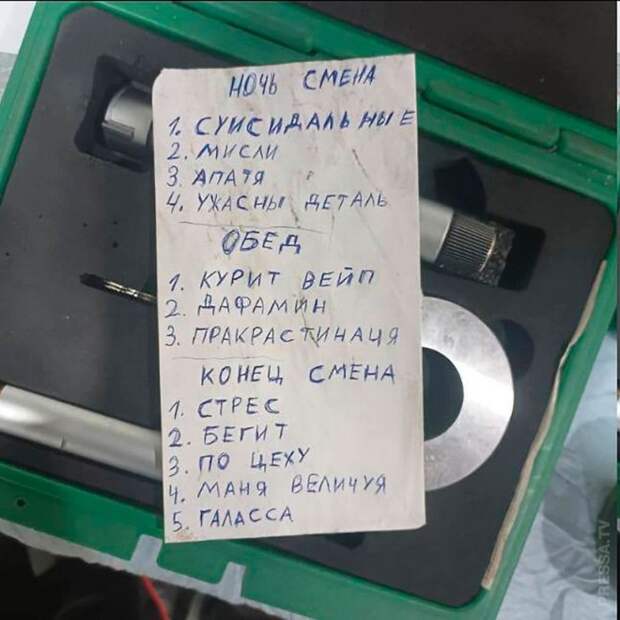 НОЧЬ СМЕНА
1. СУИСИДАЛЬНЫЕ
2. МИСЛИ
3 АПАТЯ
4. УЖАСНЫ ДЕТАЛЬ
ОБЕД
1. КУРИТ ВЕЙП
2. ДАФАМИН
3. ПРАКРАСТИНАЦЯ
КОНЕЦ СМЕНА
1. СТРЕС
2. БЕГИТ
3. ПО ЦЕХУ
4. МАНЯ ВЕЛИЧУЯ
5. ГАЛАССА
PRESSA.TV